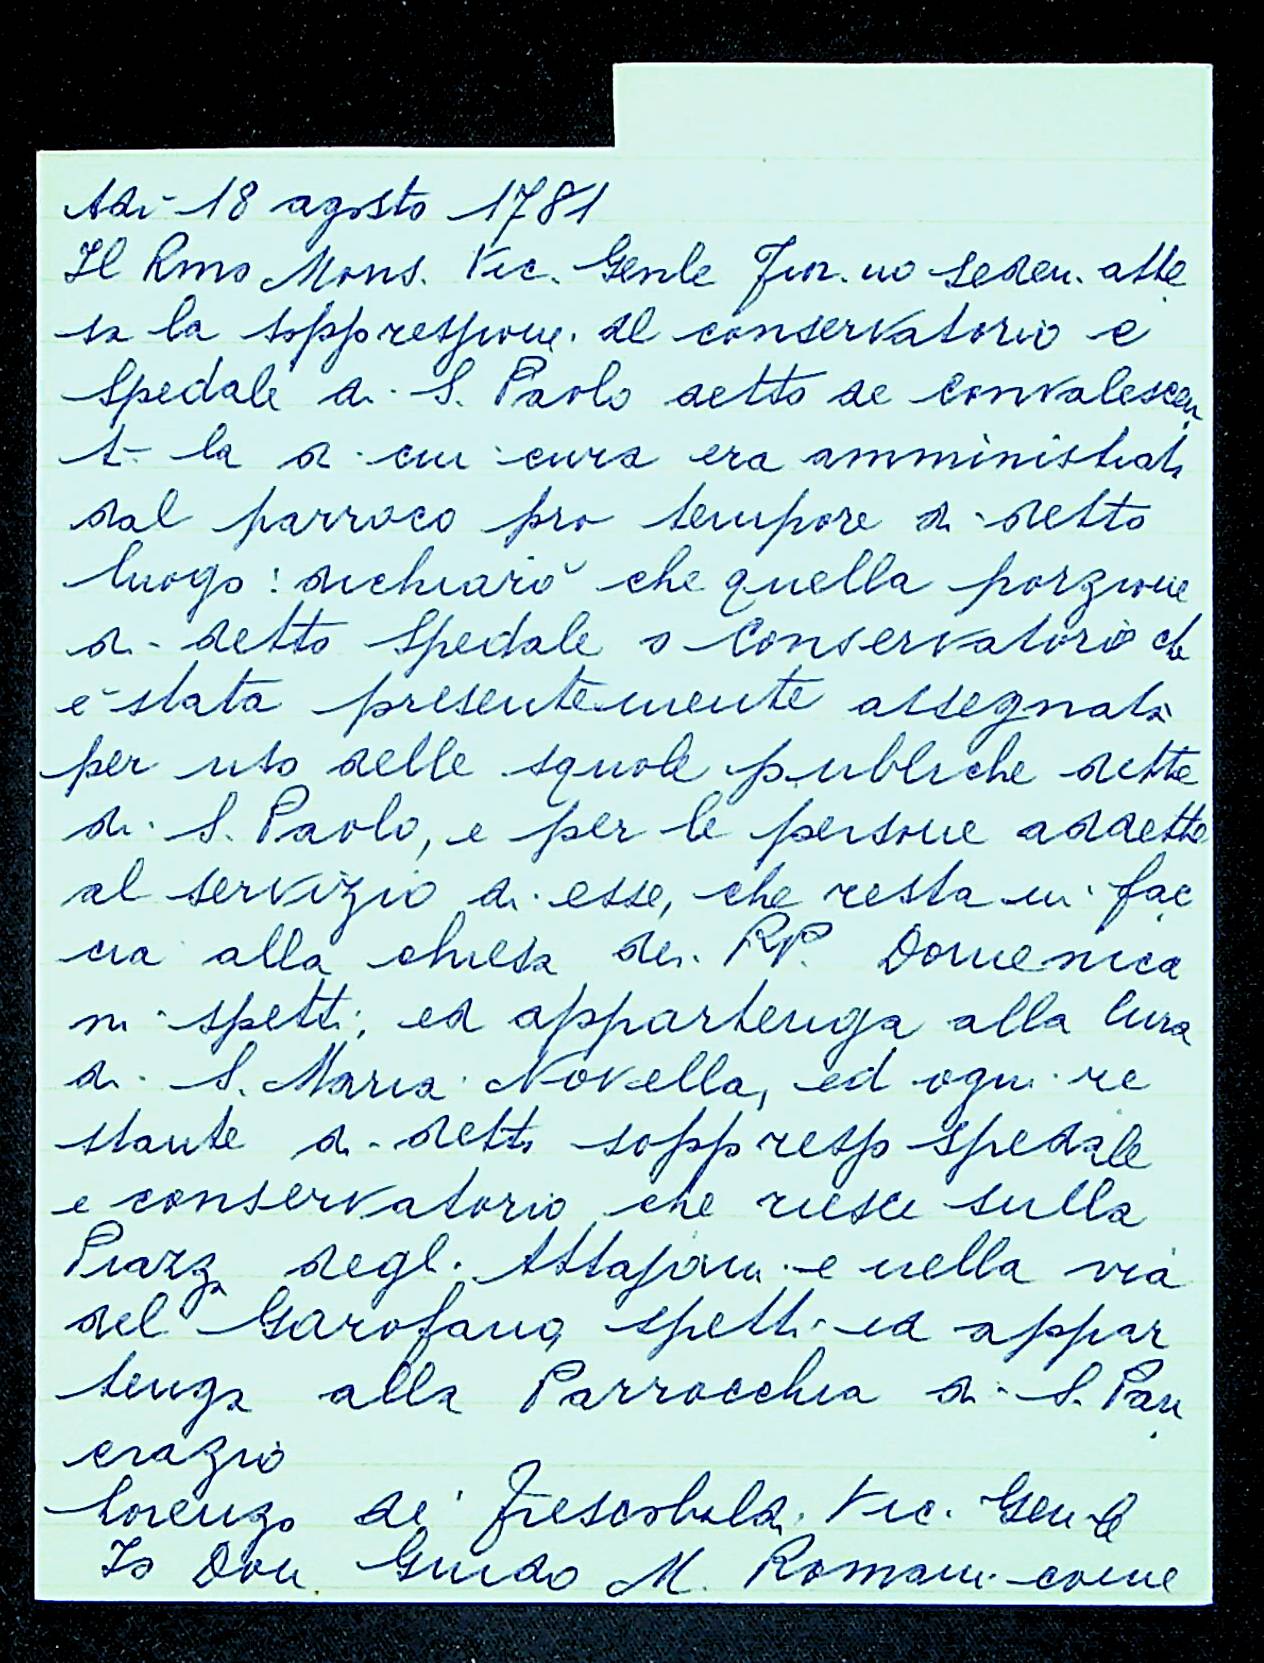 Adi 18 agosto 1781
Il Rmo Mons. Vic. Genle Fior.no seden. atte
sa la soppressione del conservatorio e
Spedale di S. Paolo detto de Convalescen
ti la di cui cura era amministrata
dal parroco pro tempore di detto
luogo: dichiarò che quella porzione
di detto Spedale o Conservatorio che
è stata presentemente assegnata
per uso delle squole publiche dette
di S. Paolo, e per le persone addette
al servizio di esse, che resta in fac
cia alla chiesa dei RP. Domenica
ni spetti, ed appartenga alla Cura
di S. Maria Novella, ed ogni re
stante di detto soppresso spedale
e conservatorio che riesce sulla
Piazza degli Attavanti e nella via
del Garofano, spetti ed appar
tenga alla Parrocchia di S. Pan
crazio
Lorenzo de' Frescobaldi Vic. Gen-le
Io Don Guido M. Romani come